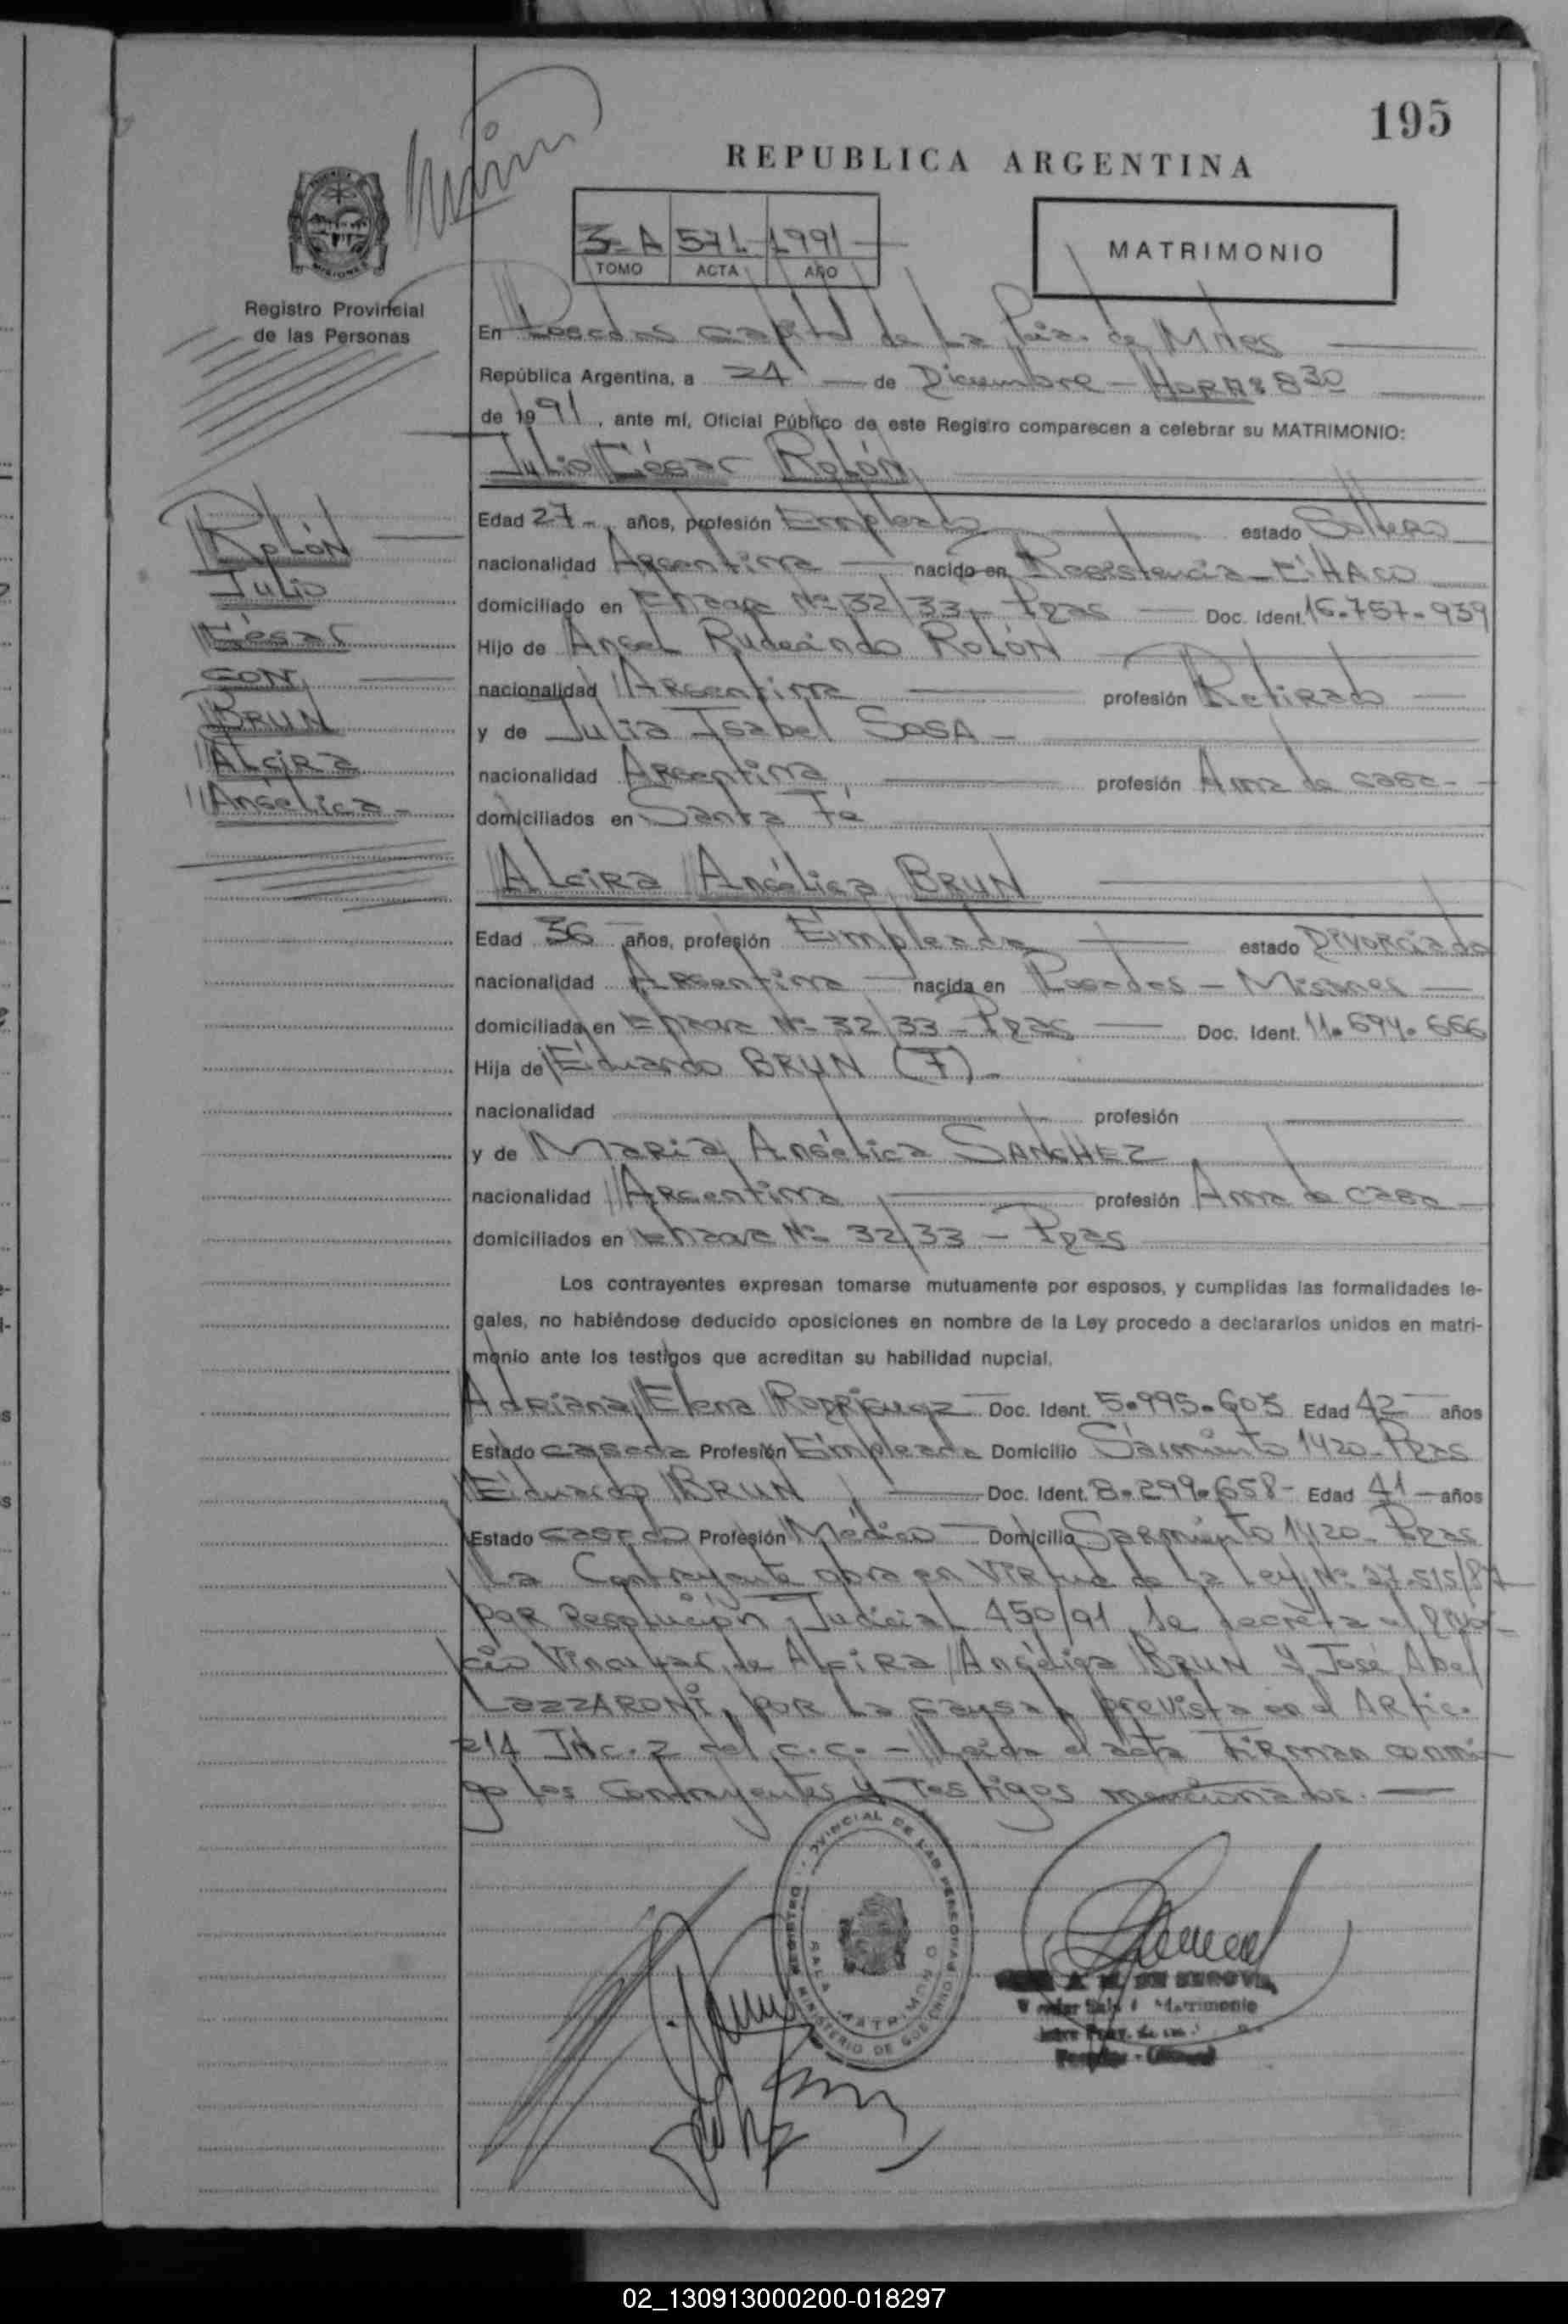 195
REPUBLICA ARGENTINA
3-A 571 1991
TOMO ACTA AÑO
MATRIMONIO
MISIONES
Registro Provincial
de las Personas
En Posadas Capital de La Pcia. de Mnes
República Argentina, a 24 de Diciembre - HORAS 8 30
de 1991, ante mí, Oficial Público de este Registro comparecen a celebrar su MATRIMONIO:
Julio César Rolón
ROLÓN
Julio
César
CON
BRUN
Alcira
Angélica -
Edad 27 -, años, profesión Empleado estado Soltero
nacionalidad Argentina nacido en Resistencia - CHACO
domiciliado en Chacra Nº 32/33 - Pdas Doc. Ident. 16.757.939
Hijo de Angel Rudecindo ROLÓN
nacionalidad Argentina profesión Retirado
y de Julia Isabel SOSA -
nacionalidad Argentina profesión Ama de casa -
domiciliados en Santa Fé
Alcira Angélica BRUN
Edad 36 años, profesión Empleada estado Divorciada
nacionalidad Argentina nacida en Posadas - Misiones
domiciliada en Chacra Nº 32/33 - Pdas Doc. Ident. 11.694.666
Hija de Eduardo BRUN (F) -
nacionalidad profesión
y de Maria Angélica SANCHEZ
nacionalidad Argentina profesión Ama de casa
domiciliados en Chacra Nº 32/33 - Pdas
Los contrayentes expresan tomarse mutuamente por esposos, y cumplidas las formalidades le-
gales, no habiéndose deducido oposiciones en nombre de la Ley procedo a declararlos unidos en matri-
monio ante los testigos que acreditan su habilidad nupcial.
Adriana Elena Rodriguez Doc. Ident. 5.995.603 Edad 42 años
Estado casada Profesión Empleada Domicilio Sarmiento 1420 - Pdas
Eduardo BRUN Doc. Ident. 8.299.658 - Edad 41 años
Estado casado Profesión Médico Domicilio Sarmiento 1420 - Pdas
La Contrayente obra en Virtud de la Ley Nº 23.515/87
por Resolución Judicial 450/91 se decreta el Divor-
cio Vincular de Alcira Angélica BRUN y José Abel
LAZZARONI, por la causal prevista en el Artic.
214 INc. 2 del C.C. - Leida el acta Firman conmi-
go los Contrayentes y Testigos mencionados. -
REGISTRO PROVINCIAL DE LAS PERSONAS
SALA MATRIMONIO
MINISTERIO DE GOBIERNO
DE SEGOVIA
Matrimonio
02_130913000200-018297